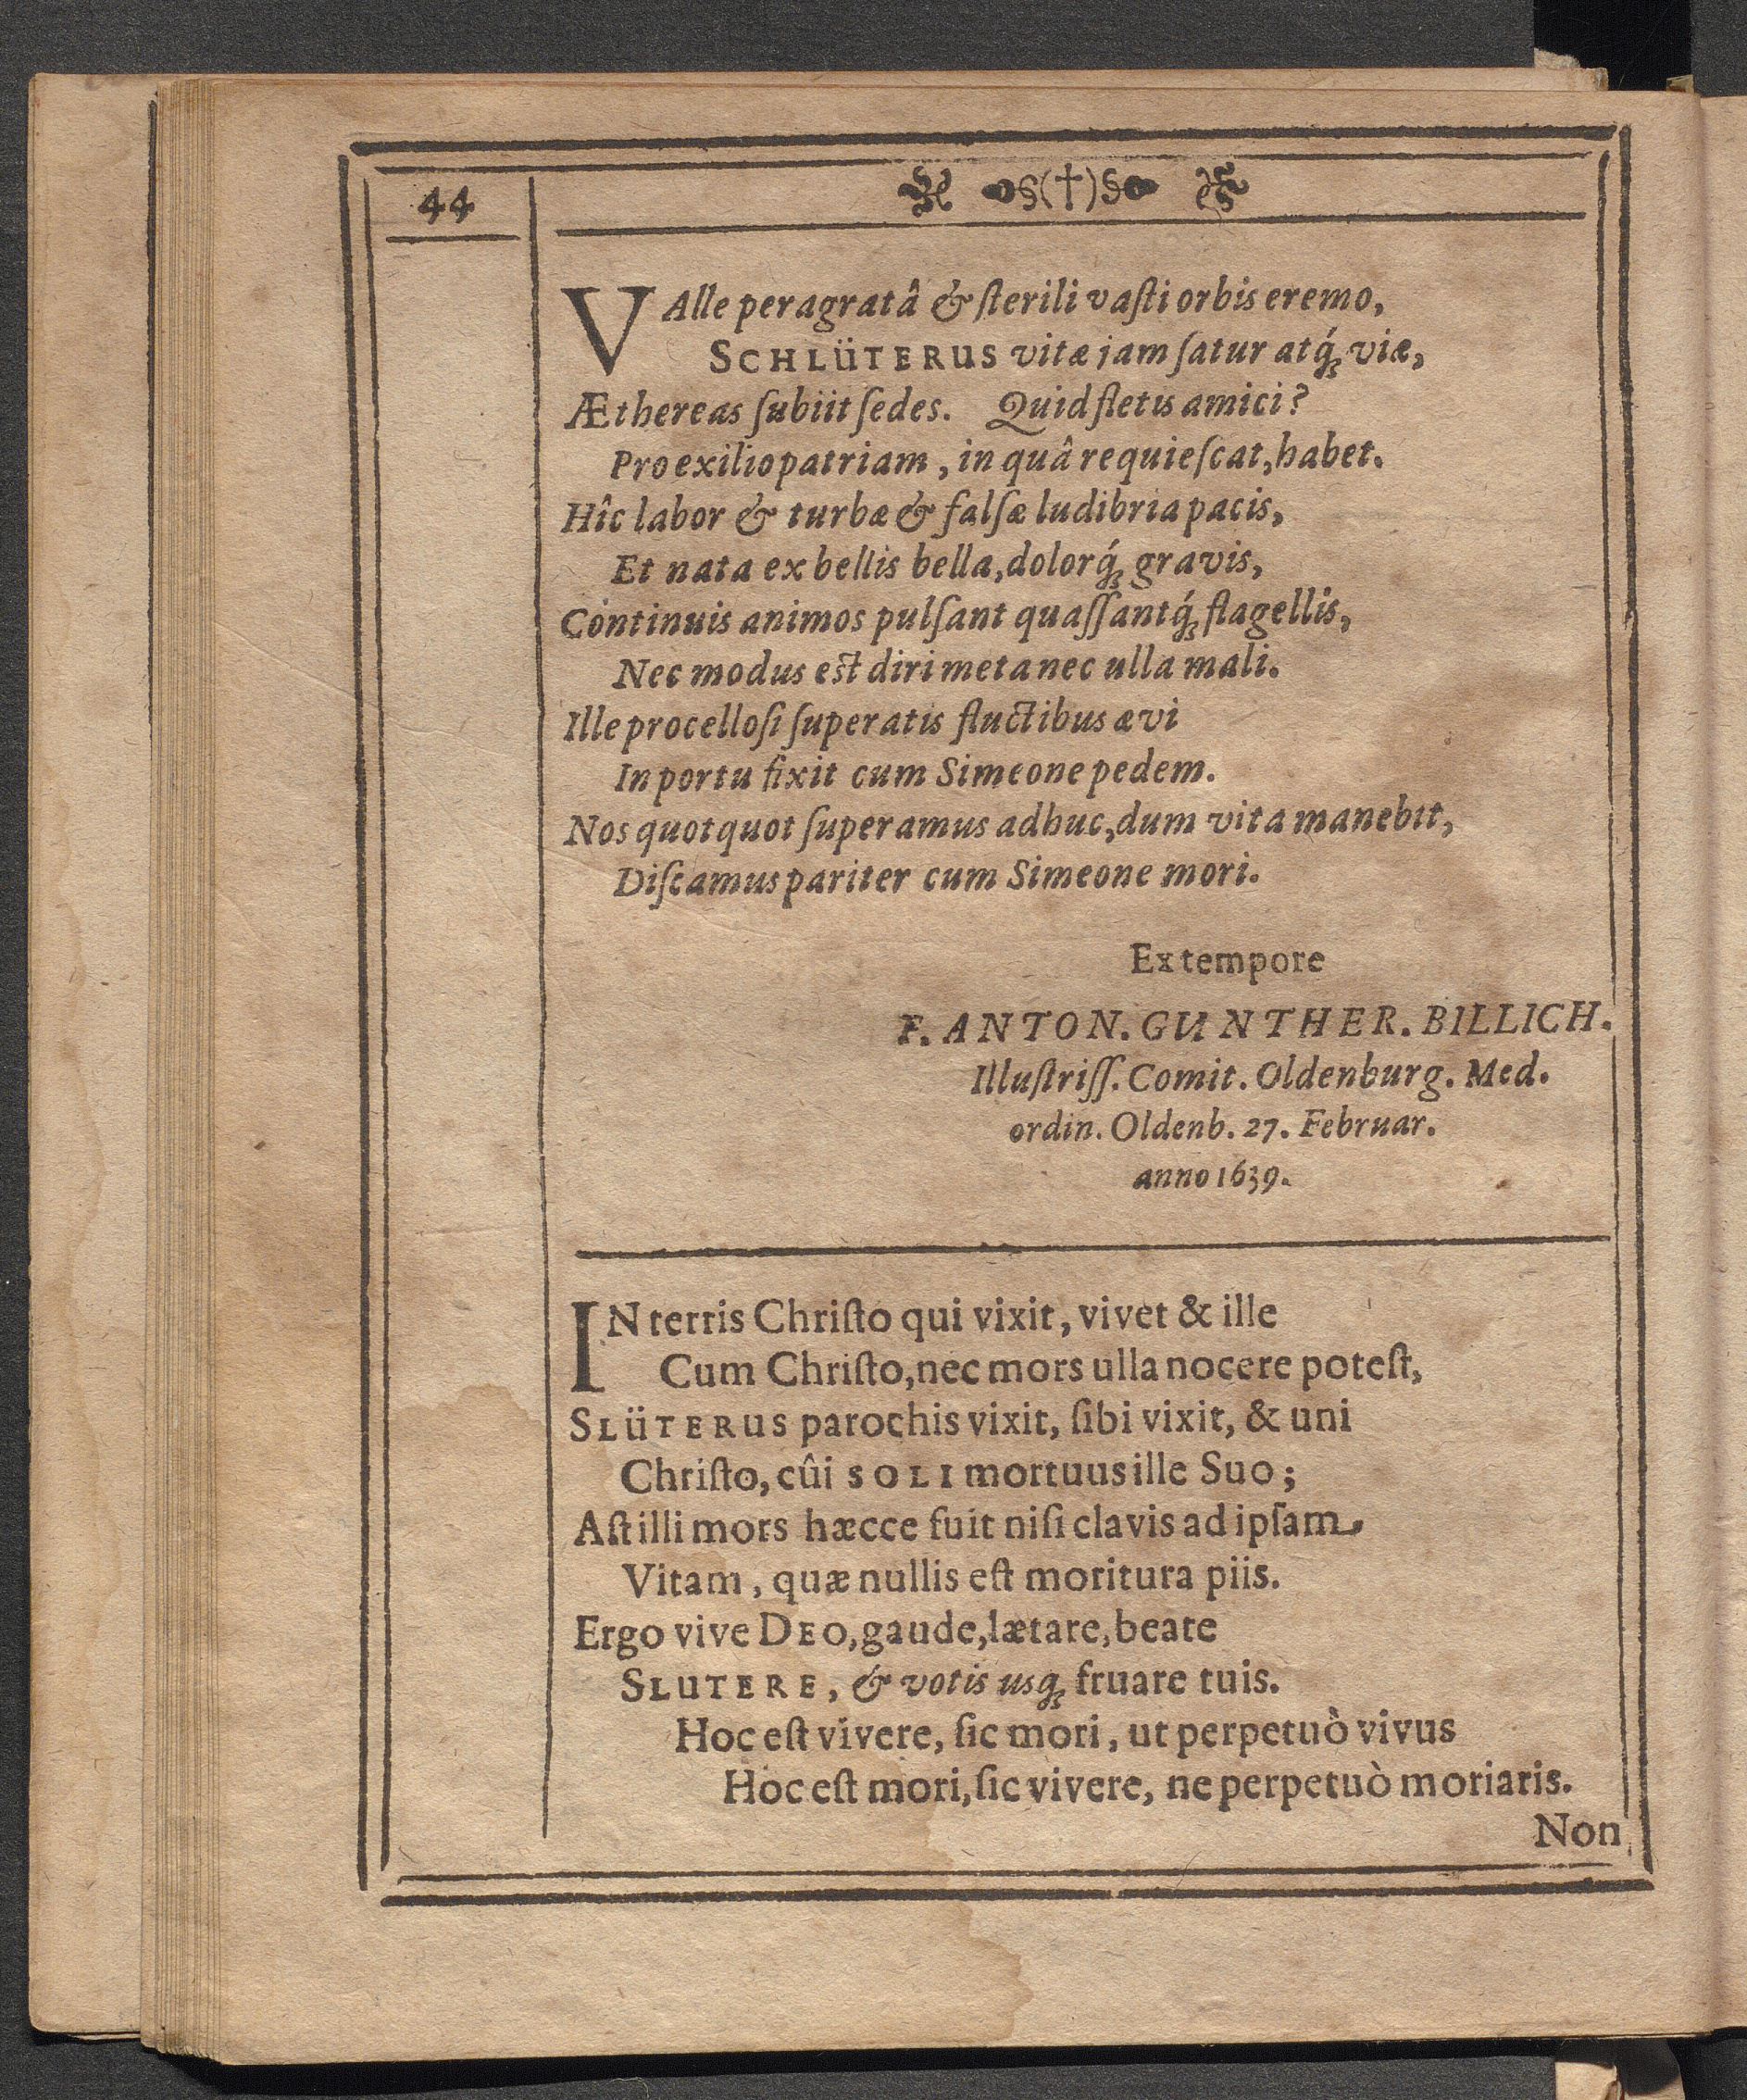 44
§(†)§
VAlle peragratâ & ſterili vaſti orbis eremo,
SCHLÜTERUS vitæ jam ſatur atq́ꝫ viæ,
Æthereas ſubiit ſedes. Quid fletis amici?
Pro exilio patriam, in quâ requieſcat, habet.
Hîc labor & turbæ & falſæ ludibria pacis,
Et nata ex bellis bella, dolorq́ꝫ gravis,
Continuis animos pulſant quaſſantq́ꝫ flagellis,
Nec modus est diri meta nec ulla mali.
Ille procelloſi ſuperatis fluctibus ævi
In portu fixit cum Simeone pedem.
Nos quotquot ſuperamus adhuc, dum vita manebit,
Diſcamus pariter cum Simeone mori.
Ex tempore
F. ANTON. GUNTHER. BILLICH.
Illuſtriſſ. Comit. Oldenburg. Med.
ordin. Oldenb. 27. Februar.
anno 1639.
IN terris Chriſto qui vixit, vivet & ille
Cum Chriſto, nec mors ulla nocere poteſt,
SLÜTERUS parochis vixit, ſibi vixit, & uni
Chriſto, cûi SOLI mortuus ille Suo;
Aſt illi mors hæcce fuit niſi clavis ad ipſam
Vitam, quæ nullis eſt moritura piis.
Ergo vive DEO, gaude, lætare, beate
SLUTERE, & votis usqꝫ fruare tuis.
Hoc eſt vivere, ſic mori, ut perpetuò vivus
Hoc eſt mori, ſic vivere, ne perpetuò moriaris.
Non